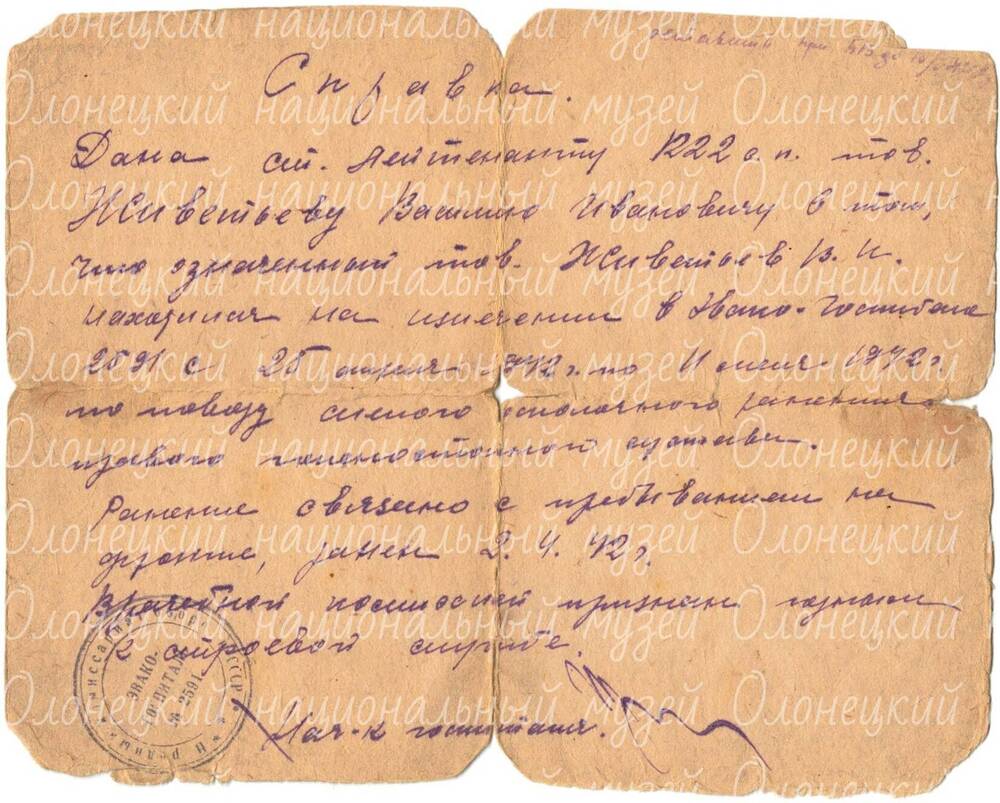 Справка.
Дана ст. лейтенанту 1222 с.п. тов.
Живетьеву Василию Ивановичу в том,
что означенный тов. Живетьев В. И.
находился на излечении в Эвако-Госпитале
2591 с 25 апреля 1942 г. по 11 мая 1942 г.
по поводу слепого осколочного ранения
правого голеностопного сустава.
Ранение связано с пребыванием на
фронте, ранен 2.4.42 г.
Врачебной комиссией признан годным
к строевой службе.
Нач-к госпиталя.
ЭВАКО-
ГОСПИТАЛЬ
№ 2591
Народный комиссариат СССР
Олонецкий национальный музей